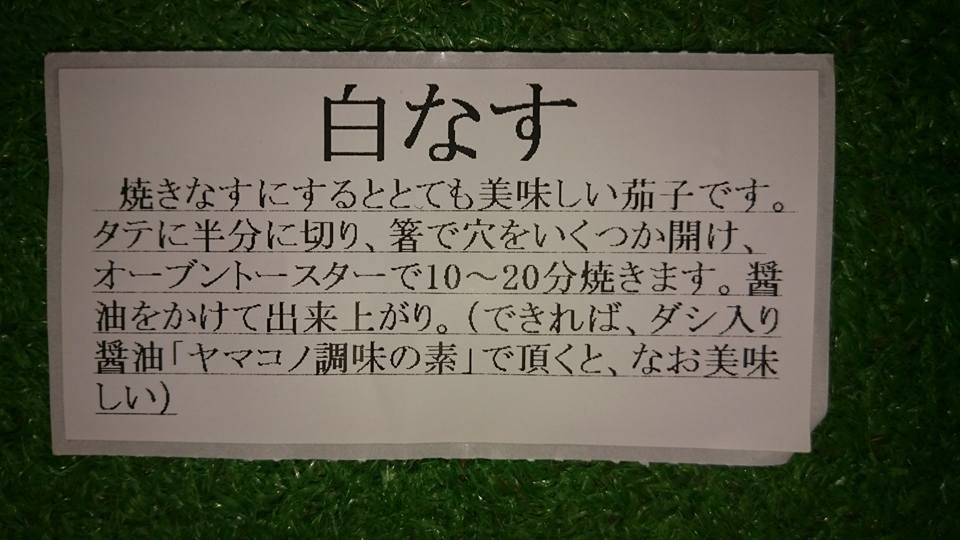 白なす
焼きなすにするととても美味しい茄子です。
タテに半分に切り、箸で穴をいくつか開け、
オーブントースターで10～20分焼きます。醤
油をかけて出来上がり。(できれば、ダシ入り
醤油「ヤマコノ調味の素」で頂くと、なお美味
しい)